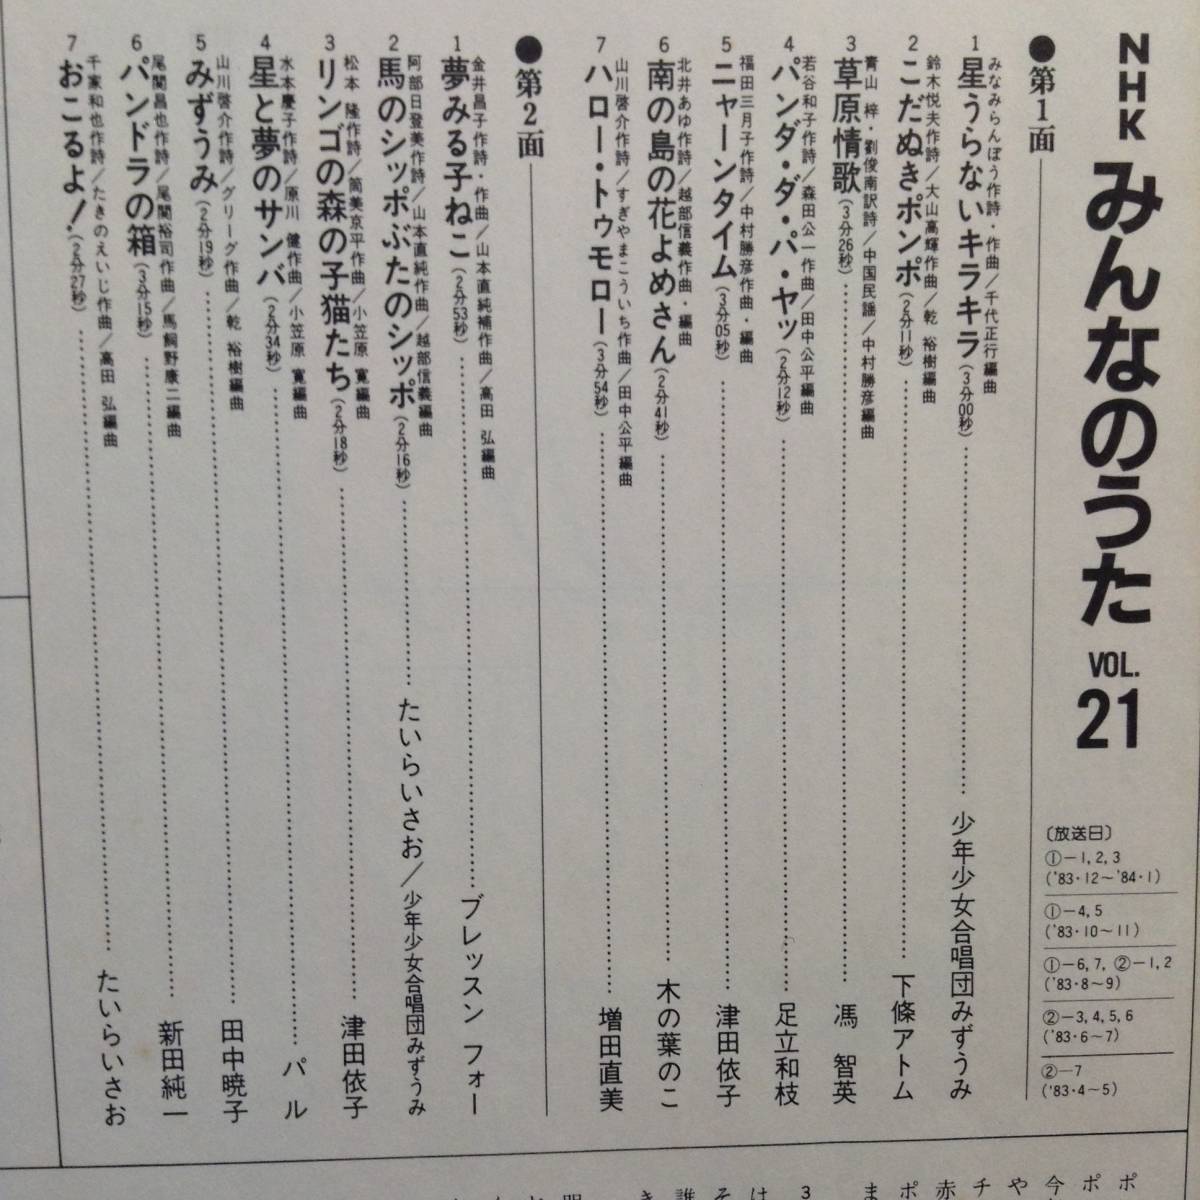 NHK みんなのうた VOL. 21
〔放送日〕
①−1, 2, 3
('83・12〜'84・1)
①−4, 5
('83・10〜11)
①−6, 7, ②−1, 2
('83・8〜9)
②−3, 4, 5, 6
('83・6〜7)
②−7
('83・4〜5)
●第1面
みなみらんぼう作詩・作曲/千代正行編曲
1 星うらないキラキラ(3分00秒)……少年少女合唱団みずうみ
鈴木悦夫作詩/大山高輝作曲/乾 裕樹編曲
2 こだぬきポンポ(2分11秒)……下條アトム
青山 梓・劉俊南訳詩/中国民謡/中村勝彦編曲
3 草原情歌(3分26秒)……馮 智英
若谷和子作詩/森田公一作曲/田中公平編曲
4 パンダ・ダ・パ・ヤッ(2分12秒)……足立和枝
福田三月子作詩/中村勝彦作曲・編曲
5 ニャーンタイム(3分05秒)……津田依子
北井あゆ作詩/越部信義作曲・編曲
6 南の島の花よめさん(2分41秒)……木の葉のこ
山川啓介作詩/すぎやまこういち作曲/田中公平編曲
7 ハロー・トゥモロー(3分54秒)……増田直美
●第2面
金井昌子作詩・作曲/山本直純補作曲/高田 弘編曲
1 夢みる子ねこ(2分53秒)……ブレッスン フォー
阿部日登美作詩/山本直純作曲/越部信義編曲
2 馬のシッポぶたのシッポ(2分16秒)……たいらいさお/少年少女合唱団みずうみ
松本 隆作詩/筒美京平作曲/小笠原 寛編曲
3 リンゴの森の子猫たち(2分18秒)……津田依子
水本慶子作詩/原川 健作曲/小笠原 寛編曲
4 星と夢のサンバ(2分34秒)……パル
山川啓介作詩/グリーグ作曲/乾 裕樹編曲
5 みずうみ(2分19秒)……田中暁子
尾関昌也作詩/尾関裕司作曲/馬飼野康二編曲
6 パンドラの箱(3分15秒)……新田純一
千家和也作詩/たきのえいじ作曲/高田 弘編曲
7 おこるよ!(2分27秒)……たいらいさお